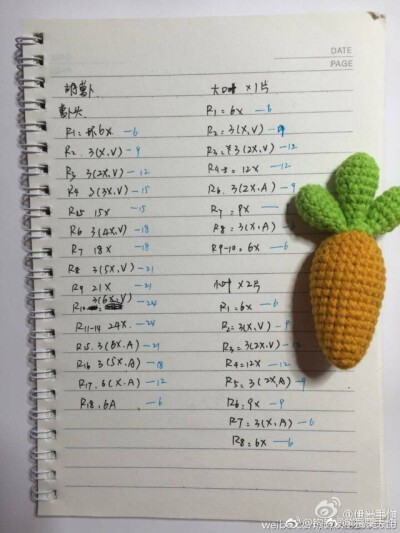 DATE
PAGE
胡萝卜
萝卜头
R1=环6X —6
R2 3(X,V) —9
R3 3(2X,V) —12
R4 3(3X,V) —15
R5 15X —15
R6 3(4X,V) —18
R7 18X —18
R8 3(5X,V) —21
R9 21X —21
R10 3(6X,V) —24
R11-14 24X. —24
R15. 3(6X.A) —21
R16 3(5X.A) —18
R17. 6(X.A) —12
R18. 6A —6
大叶 ×1片
R1=6X —6
R2=3(X,V) —9
R3=3(2X,V) —12
R4-5=12X —12
R6. 3(2X.A) —9
R7=9X —
R8=3(X.A)
R9-10=6X —6
小叶 ×2片
R1=6X —6
R2=3(X,V) —9
R3=3(2X.V)
R4=12X —12
R5=3(2X,A) —9
R6=9X —9
R7=3(X,A) —6
R8=6X —6